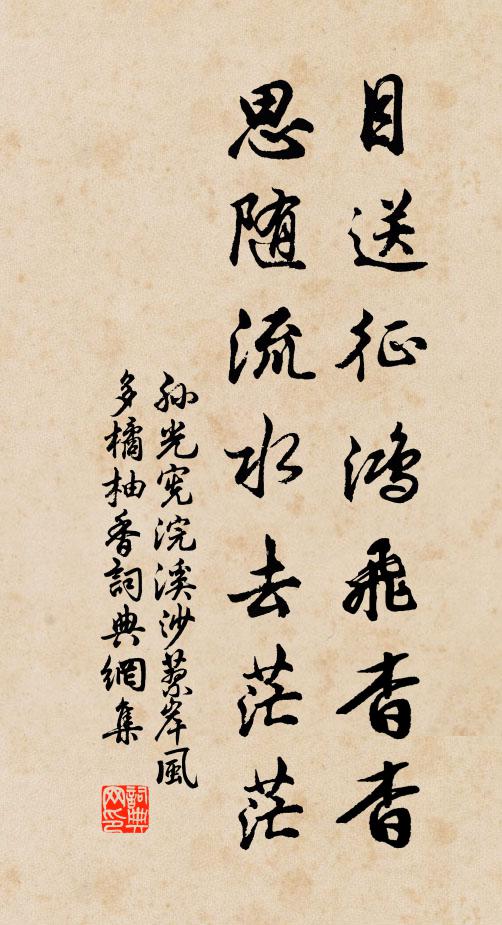 目送征鸿飛杳杳
思随流水去茫茫
孙光宪浣溪沙蓼岸風
多橘柚香詞典網集
詞典网印